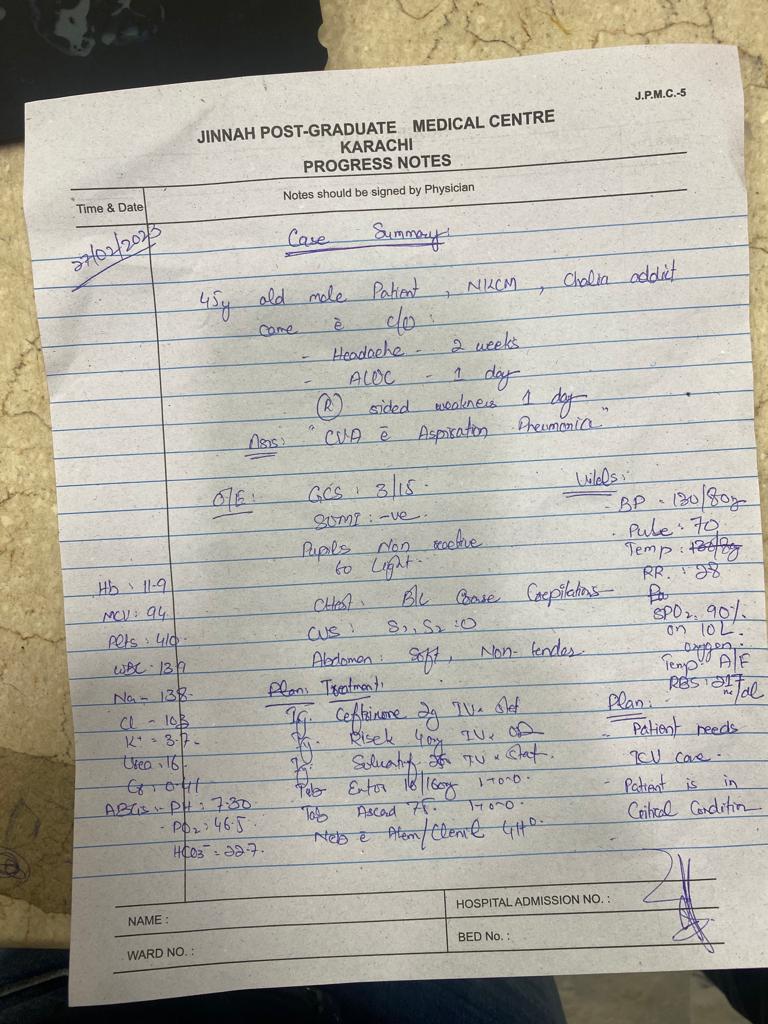 J.P.M.C.-5
JINNAH POST-GRADUATE MEDICAL CENTRE
KARACHI
PROGRESS NOTES
Time & Date
Notes should be signed by Physician
27/02/2023
Case Summary:
45y old male Patient, NKCM, Chalia addict
came c̄ c/o:
- Headache - 2 weeks
- ALOC - 1 day
(R) sided weakness 1 day
"CVA c̄ Aspiration Pneumonia"
O/E:
GCS: 3/15.
SOMI: -ve.
Pupils Non reactive
to Light.
Chest: B/L Coarse Crepitations
CVS: S1, S2: 0
Abdomen: Soft, Non-tender.
Vitals:
- BP - 130/80
- Pulse: 70
Temp:
RR.: 28
SPO2: 90%
on 10L.
oxygen.
Temp A/F
RBS: 217 mg/dl
Hb: 11.9
MCV: 94
Plts: 410
WBC: 13.9
Na - 138
Cl - 103
K+ = 3.7.
Urea: 16
Cr: 0.41
ABGs:- PH: 7.30
- PO2: 46.5
HCO3- = 22.7.
Plan: Treatment:
Inj. Ceftrixone 2g IV x Stat
Inj. Risek 40mg IV x OD
Inj. IV x Stat.
Tab 1+0+0.
Tab Ascard 75. 1+0+0.
Neb c̄ Atem/Clenil
Plan:
- Patient needs
ICU care.
- Patient is in
Critical Condition
NAME :
HOSPITAL ADMISSION NO. :
WARD NO. :
BED No. :